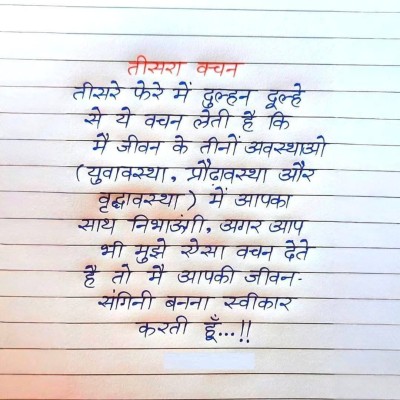 तीसरा वचन
तीसरे फेरे में दुल्हन दूल्हे
से ये वचन लेती है कि
मै जीवन के तीनों अवस्थाओ
(युवावस्था, प्रौढ़ावस्था और
वृद्धावस्था) में आपका
साथ निभाऊंगी, अगर आप
भी मुझे ऐसा वचन देते
है तो मै आपकी जीवन-
संगिनी बनना स्वीकार
करती हूँ...!!